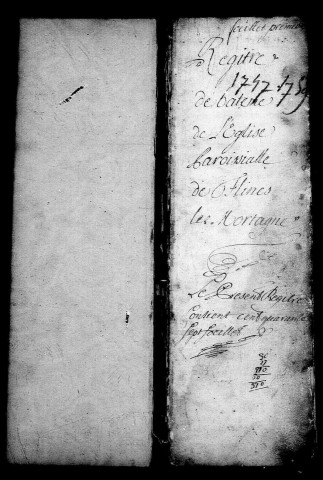 feuillet premier
Regitre
1747 17
de bateme
de l'Eglise
Paroissialle
de flines
lez Mortagne
Le Present Regitre
Contient cent quarante
sept foeillet